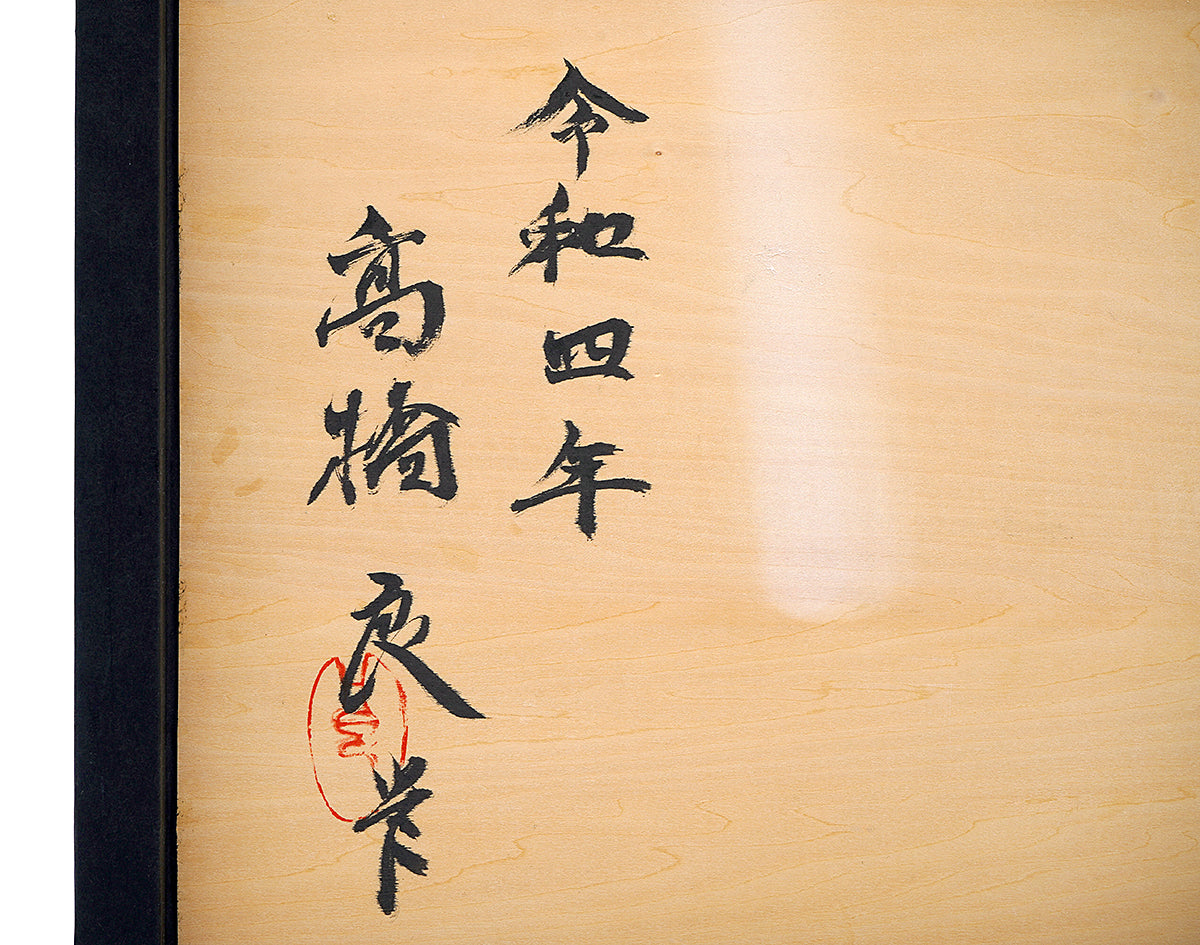 令和四年
高橋 良